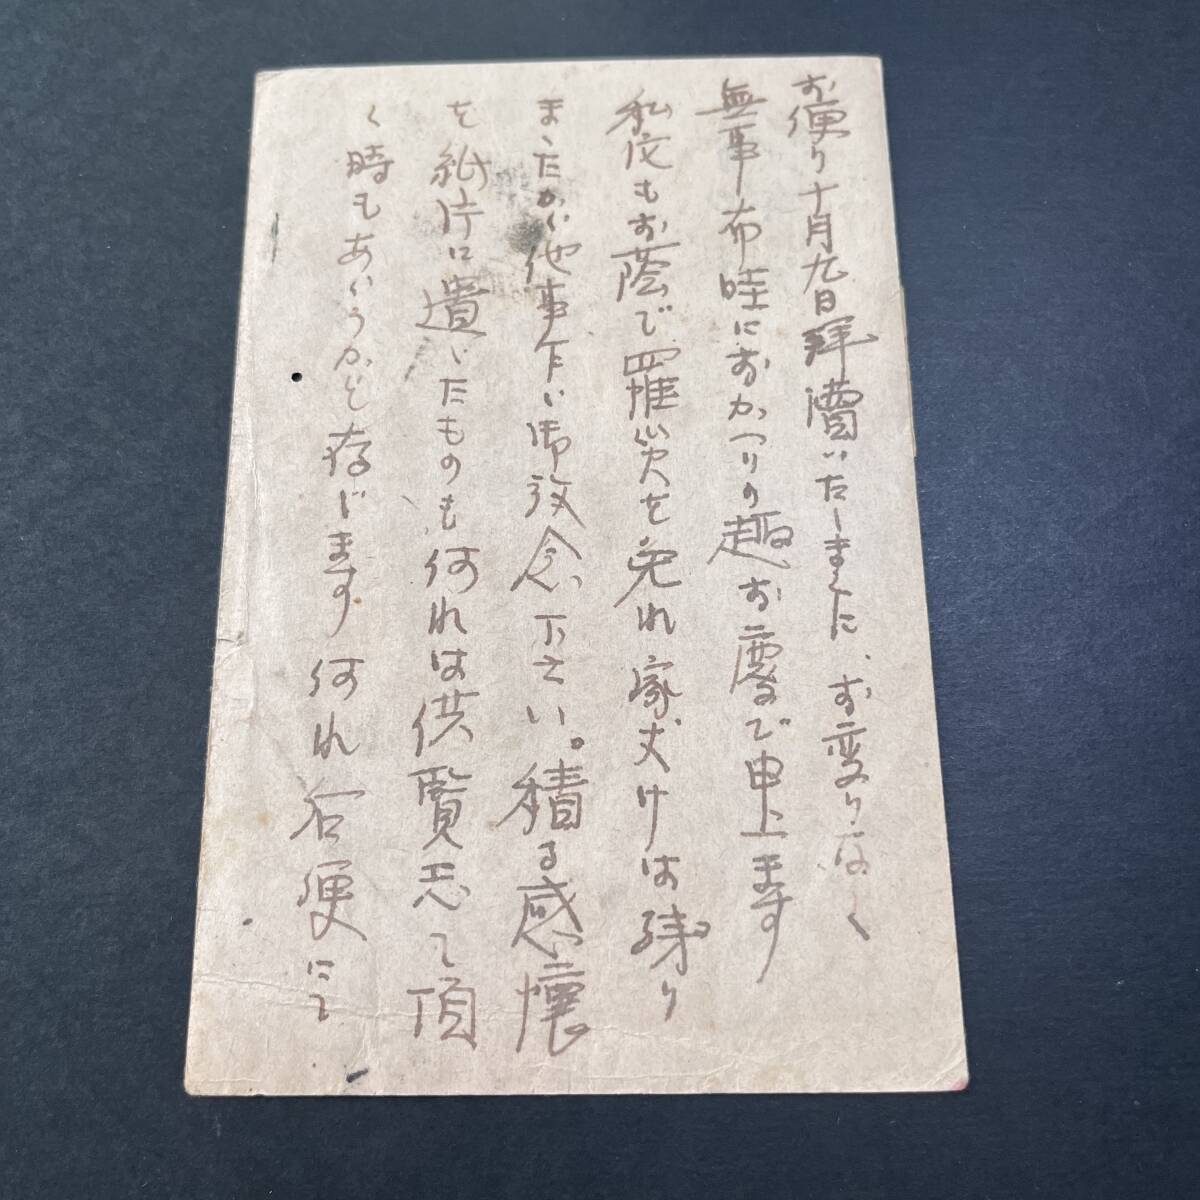 お便り十月九日拝讀いたしました、お変りなく
無事布哇におかへりの趣お慶び申上ます
私方もお蔭で罹災を免れ家丈けは残り
ましたから他事乍ら御放念下さい。積る感懐
を紙片に遺したものも何れは供覧して頂
く時もあらうかと存じます 何れ后便にて